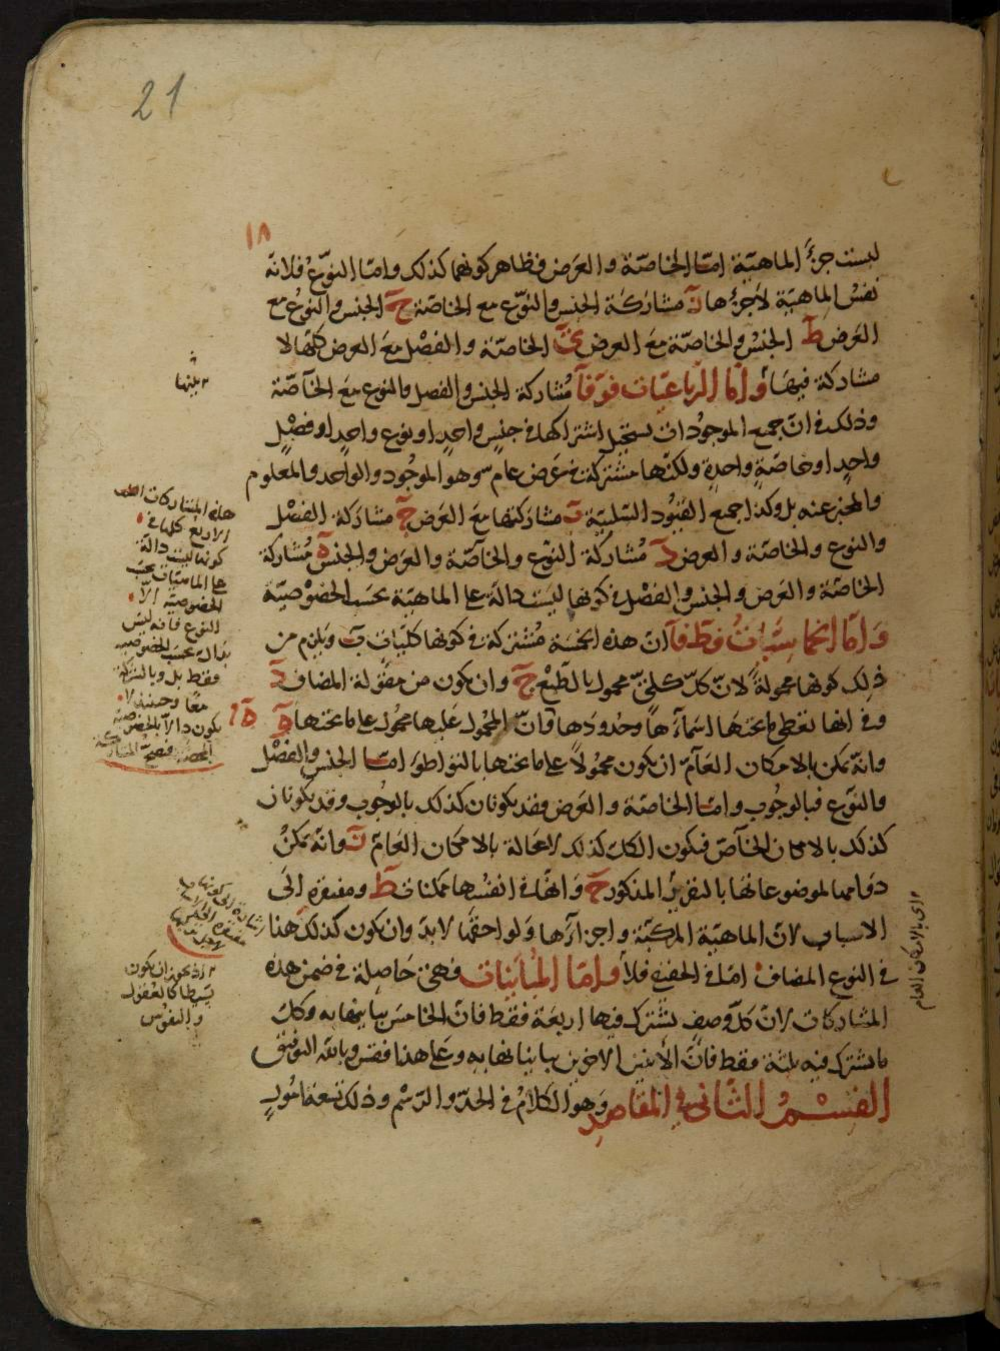 21
١٨
ليست جزءُ الماهيّة امّا الخاصّة والعَرَض فظاهر كونهما كذلك وامّا النوّع فلانّه
نفس الماهيّة لاجزءُها زَ مشاركة الجنس والنوّع مع الخاصّة حَ الجنس والنوع مع
العَرَض طَ الجنس والخاصّة مَع العرض يَ الخاصّة والفصْل مَع العرض كلها لا
مشاركة فيها وامّا الرباعيّات فوَ فآ مُشاركة الجنس والفصل والنوع مع الخآصّة
وذلك في انّ جميع الموجُودات يستحيل اشتراكها في جنسٍ واحدٍ او نوع واحدٍ او فصْلٍ
واحدٍ او خاصّةٍ واحدةٍ ولكنّها مشتركة في عَرَض عام وهو الموجُود والواحد والمعلوم
والمخبر عنه بل وكذا جميع القيُود السّلبيّة بَ مشاركتها مع العَرَض جَ مشاركة الفصْل
والنوع والخاصّة والعرض دَ مُشاركة النوّع والخاصّة والعرَض والجنس هَ مُشاركة
الخاصّة والعَرَض والجنس والفصْل في كونها ليسَت دالة على الماهيّة بحسَب الخصُوصيّة
وَامّا الخماسيّاتُ فوَ فآ انّ هذه الخمسَة مُشتركة في كونها كليّات بَ ويلزم من
ذلك كونها محمولةً لانّ كلّ كليّ محمول بالطّبْع جَ وان يكون من مقُولة المضاف دَ
وفي انها تعطي ما تحتَها اسمآءَهاً وحدُودَها فانّ المحمُول عَليها محمُول على ما تحتها هَ
وانّه يمكن بالامكان العَآمّ ان يكون محمُولاً على ما تحتها بالتواطؤ امّا الجنس والفصْل
والنوّع فبالوجُوب وامّا الخاصّة والعَرَض فقد يكونان كذلك بالوجُوب وقد يكونان
كذلك بالامكان الخآصّ فيكون الكلّ كذلك لا محالة بالامكان العَامّ زَ وانّه يمكنُ
دوامها لموضوعاتها بالتقرير المذكور حَ وانّها في انفسُها ممكنات طَ ومفتقرة الى
الاسباب لانّ الماهيّة المركبّة واجزآءها ولواحقها لابدّ وان يكون كذلك هنا
في النوع المضاف امّا في الحقيقي فلا وامّا المبُاينَات فهي حَاصِلة في ضمن هذه
المشاركات لانّ كلّ وصفٍ تشترك فيها اربعَة فقط فانّ الخامسَ يباينها به وكلّ
ما يشترك فيه ثلثة فقط فانّ الاثنين الاخرين يباينانها به وعلى هذا فقس وبالله التوفيق
القسْمُ الثّاني في المقاصِد وَهو الكلامُ في الحدّ والرسْم وذلك تسعة امُورٍ
هذه المشاركات
الاربع كلها في
كونها ليست دالّة
على الماهيّات بحسَب
الخصوصيّة الّا
النوع فانه ليسَ
بدالّ بحسَب الخصوصية
فقط بل وبالشركة
معًا وحينئذ لا
يكون دالا
اذ يجوز ان يكون
بسيطا كالعقول
والنفوس
اي بالامكان العام